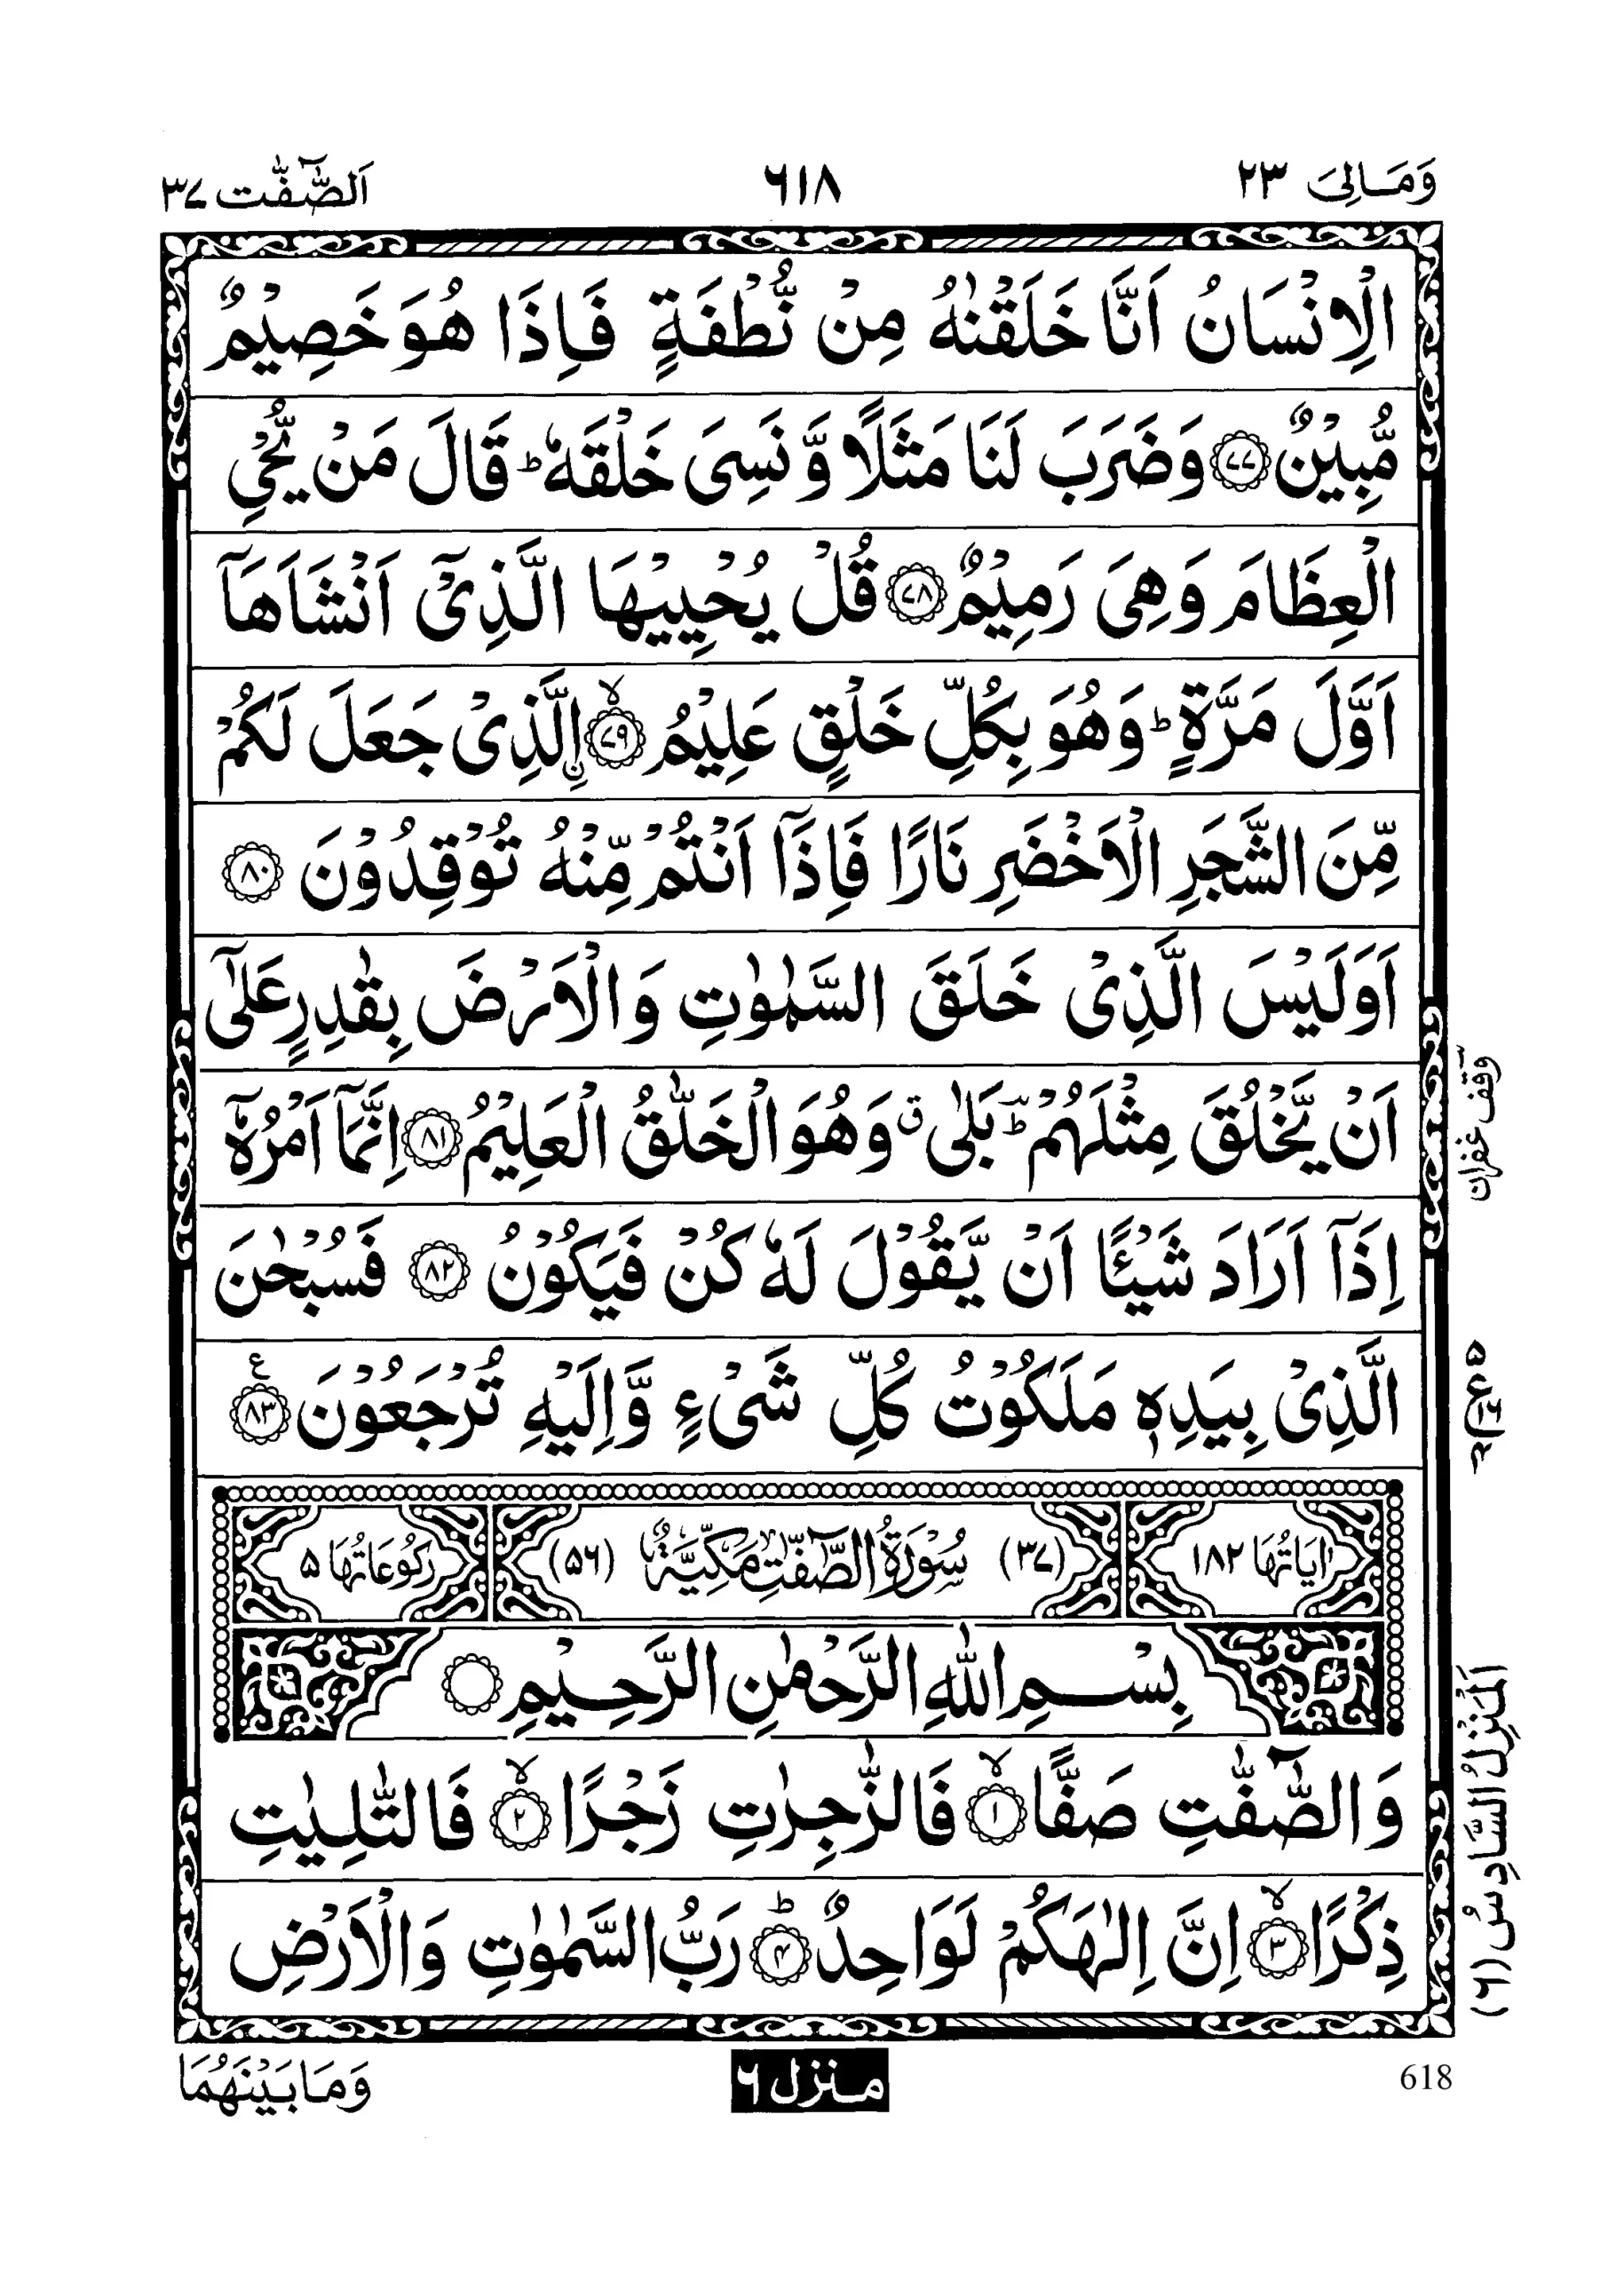 وَمَالِیَ ۲۳
۶۱۸
اَلصّٰٓفّٰت ۳۷
الْاِنْسَانُ اَنَّا خَلَقْنٰهُ مِنْ نُّطْفَةٍ فَاِذَا هُوَ خَصِيْمٌ
مُّبِيْنٌ ﴿۷۷﴾ وَضَرَبَ لَنَا مَثَلًا وَّنَسِیَ خَلْقَهٗ ؕ قَالَ مَنْ يُّحْیِ
الْعِظَامَ وَهِیَ رَمِيْمٌ ﴿۷۸﴾ قُلْ يُحْيِيْهَا الَّذِیْۤ اَنْشَاَهَاۤ
اَوَّلَ مَرَّةٍ ؕ وَهُوَ بِكُلِّ خَلْقٍ عَلِيْمُ ۙ﴿۷۹﴾ اۨلَّذِیْ جَعَلَ لَكُمْ
مِّنَ الشَّجَرِ الْاَخْضَرِ نَارًا فَاِذَاۤ اَنْتُمْ مِّنْهُ تُوْقِدُوْنَ ﴿۸۰﴾
اَوَلَيْسَ الَّذِیْ خَلَقَ السَّمٰوٰتِ وَالْاَرْضَ بِقٰدِرٍ عَلٰۤی
اَنْ يَّخْلُقَ مِثْلَهُمْ ؕؔ بَلٰی ۗ وَهُوَ الْخَلّٰقُ الْعَلِيْمُ ﴿۸۱﴾ اِنَّمَاۤ اَمْرُهٗۤ
اِذَاۤ اَرَادَ شَيْئًا اَنْ يَّقُوْلَ لَهٗ كُنْ فَيَكُوْنُ ﴿۸۲﴾ فَسُبْحٰنَ
الَّذِیْ بِيَدِهٖ مَلَكُوْتُ كُلِّ شَیْءٍ وَّاِلَيْهِ تُرْجَعُوْنَ ﴿۸۳﴾ ع
اٰيَاتُهَا ۱۸۲ (۳۷) سُوْرَةُ الصّٰٓفّٰتِ مَكِّيَّةٌ (۵۶) رُكُوْعَاتُهَا ۵
بِسْمِ اللّٰهِ الرَّحْمٰنِ الرَّحِيْمِ
وَالصّٰٓفّٰتِ صَفًّا ۙ﴿۱﴾ فَالزّٰجِرٰتِ زَجْرًا ۙ﴿۲﴾ فَالتّٰلِيٰتِ
ذِكْرًا ۙ﴿۳﴾ اِنَّ اِلٰهَكُمْ لَوَاحِدٌ ؕ﴿۴﴾ رَبُّ السَّمٰوٰتِ وَالْاَرْضِ
وقف غفران
۵ ع
اَلْمَنْزِلُ السَّادِسُ (۶)
618
منزل ۶
وَمَا بَيْنَهُمَا